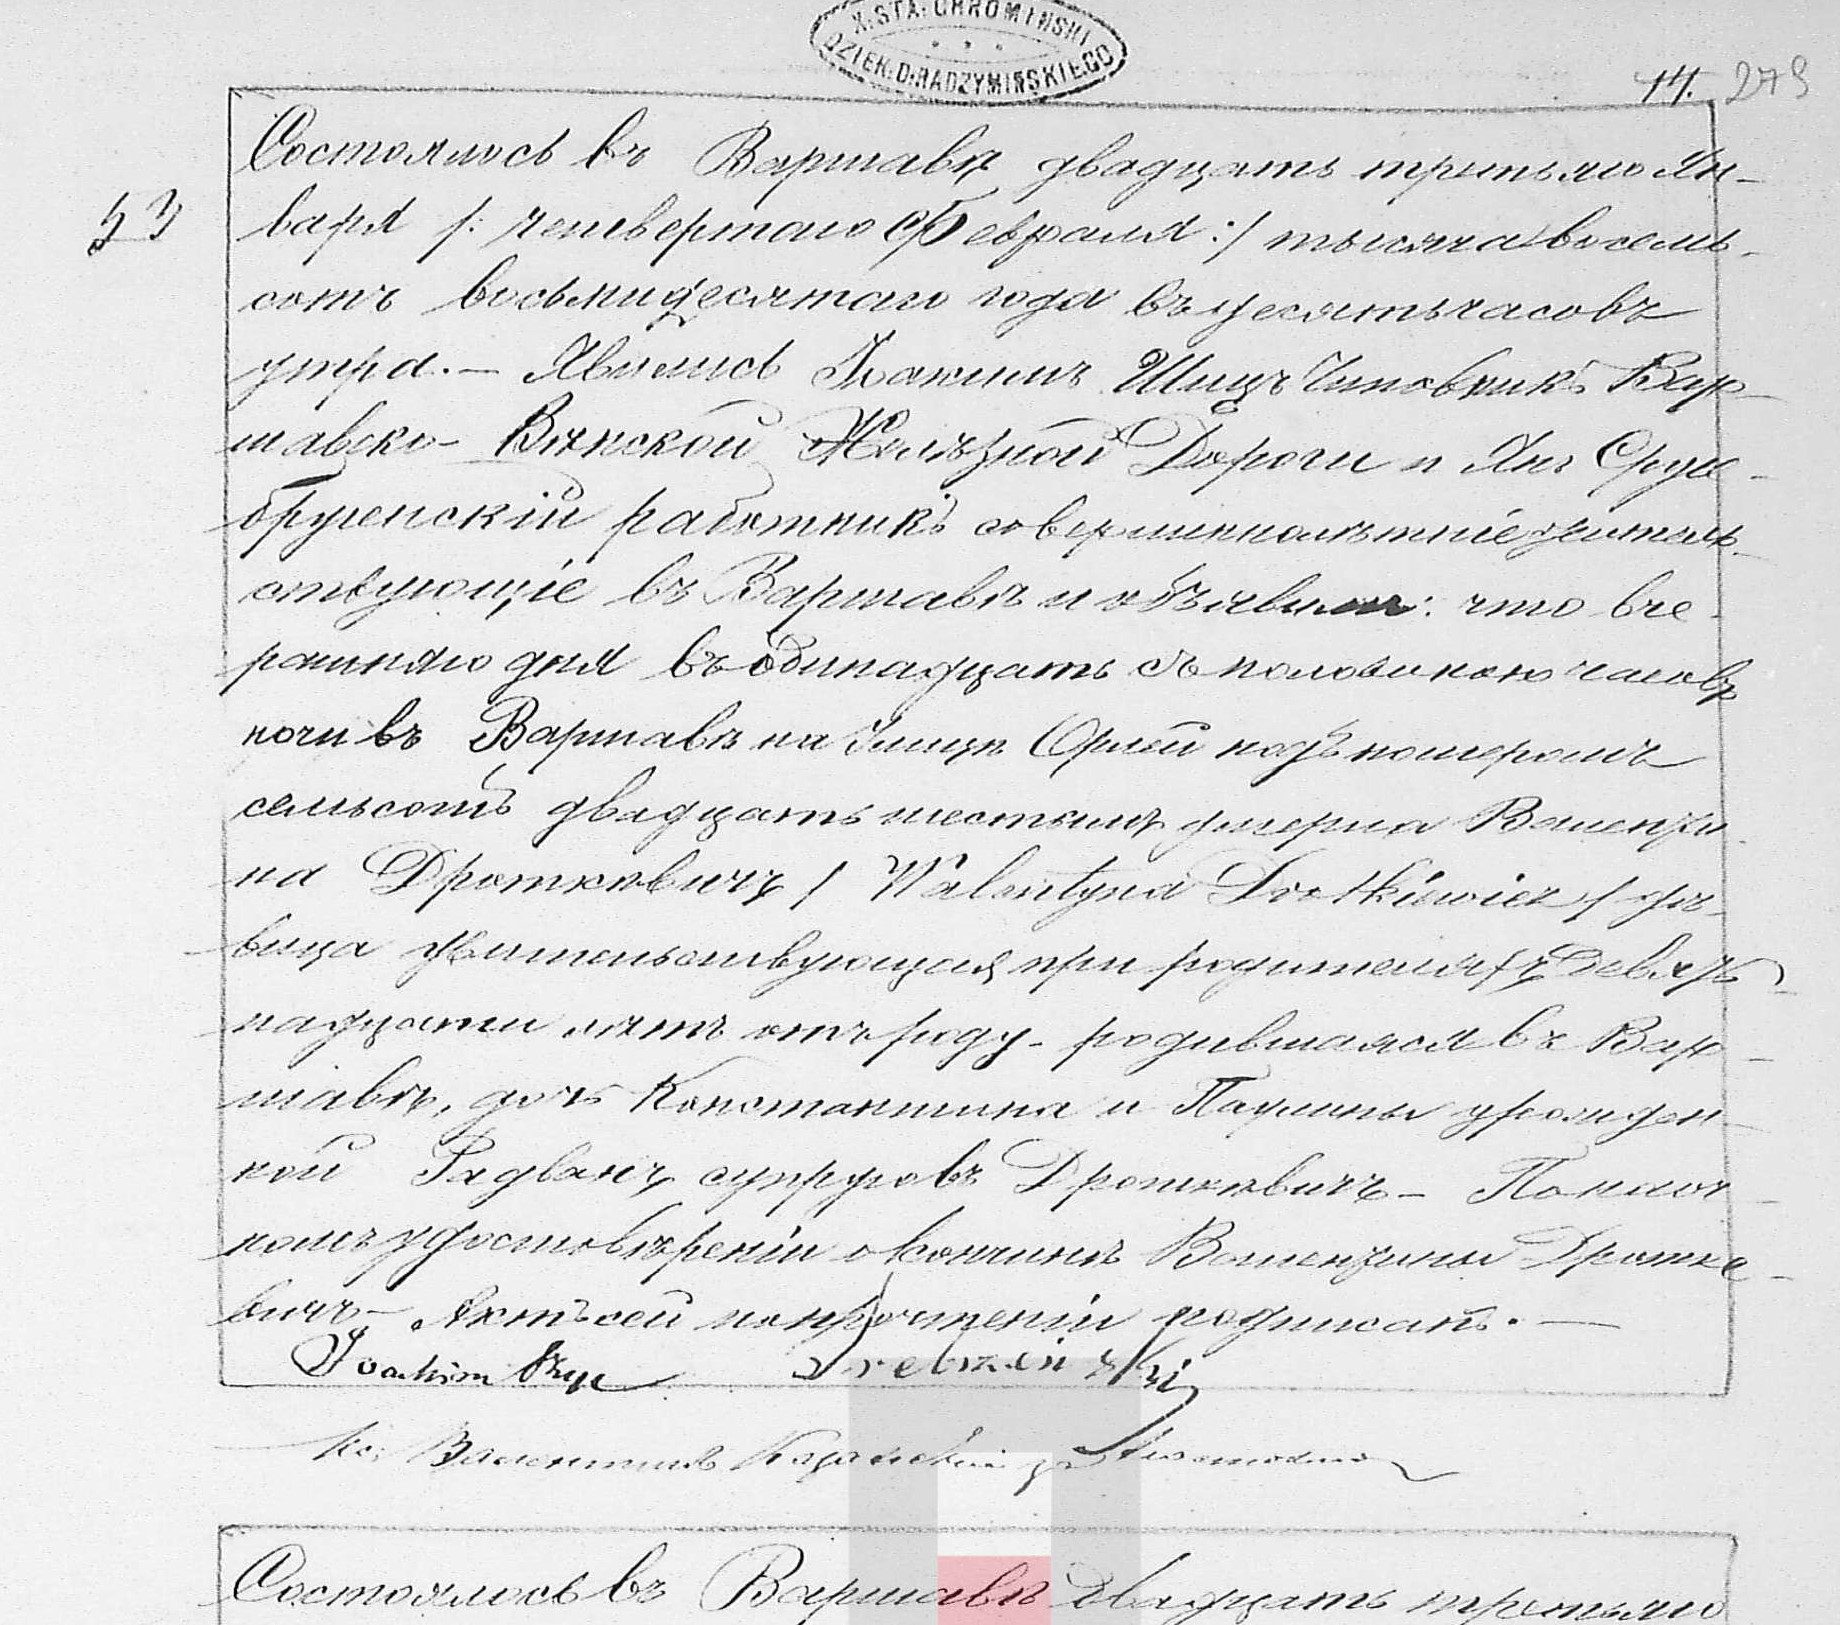 X. STA. CHROMIŃSKI
DZIEK. D. RADZYMIŃSKIEGO
14. 279
53
Состоялось въ Варшавѣ двадцать третьяго Ян-
варя /: четвертаго Февраля :/ тысяча восемь-
сотъ восьмидесятаго года въ десять часовъ
утра. — Явились Іоакимъ Шицъ Чиновникъ Вар-
шавско-Вѣнской Желѣзной Дороги и Янъ Сре-
брженскій работникъ совершеннолѣтніе житель-
ствующіе въ Варшавѣ и объявили: что вче-
рашняго дня въ одинадцать съ половиною часовъ
ночи въ Варшавѣ на Улицѣ Орлей подъ номеромъ
семьсотъ двадцать шестымъ умерла Валенти-
на Дроткевичъ / Walentyna Drotkiewicz / дѣ-
вица жительствующая при родителяхъ девят-
надцати лѣтъ отъ роду - родившаяся въ Вар-
шавѣ, дочь Константина и Паулины урожден-
ной Радванъ супруговъ Дроткевичъ — По наоч-
номъ удостовѣреніи о кончинѣ Валентины Дротке-
вичъ — Актъ сей по прочтеніи подписанъ. —
Joachim Szyc
Кс. Валентинъ
Состоялось въ Варшавѣ двадцать третьяго